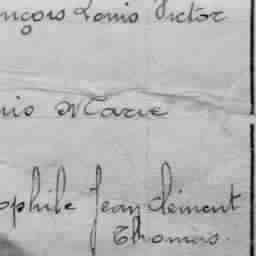 nçois Louis Victor
uis Marie
ophile Jean Clément
Thomas.